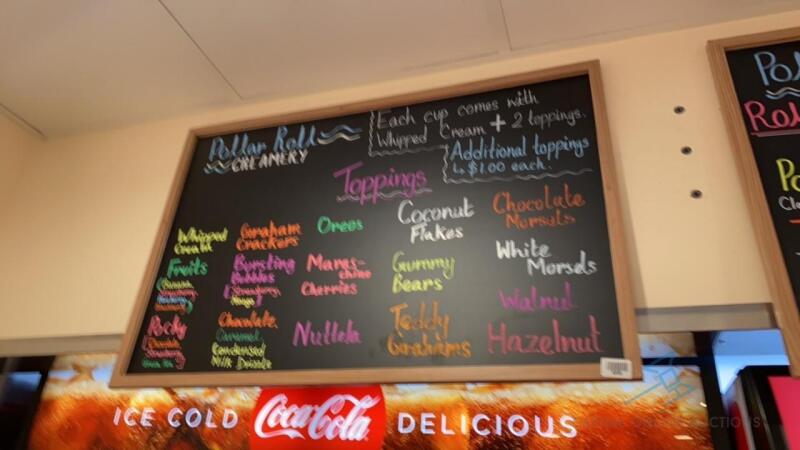 Pollar Roll
CREAMERY
Each cup comes with
Whipped Cream + 2 toppings.
Additional toppings
$1.00 each.
Toppings
Whipped
Cream
Graham
Crackers
Oreos
Coconut
Flakes
Chocolate
Morsels
Fruits
Banana,
Strawberry,
Bursting
Bubbles
Strawberry,
Mango
Maras-
chino
Cherries
Gummy
Bears
White
Morsels
Rocky
Chocolate,
Strawberry,
Chocolate,
Caramel,
Condensed
Milk Drizzle
Nutella
Teddy
Grahams
Walnut
Hazelnut
ICE COLD
Coca-Cola
DELICIOUS